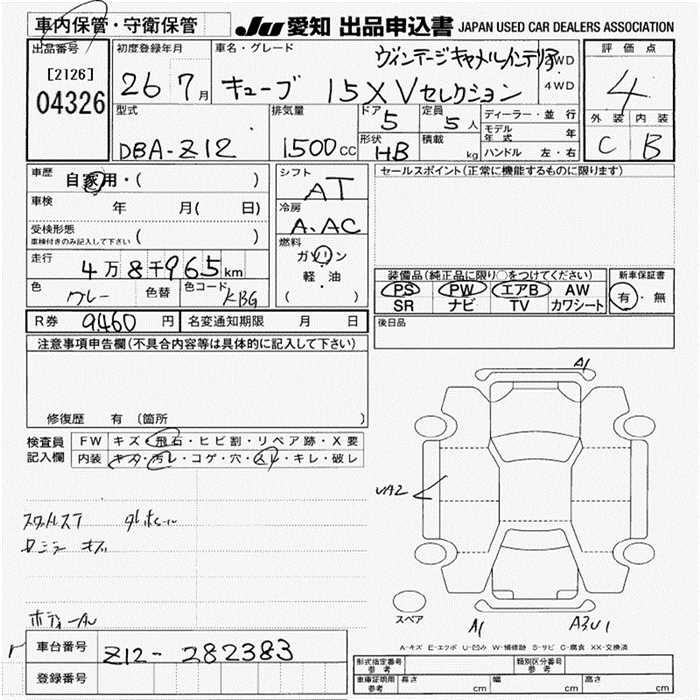 車内保管・守衛保管
JU 愛知 出品申込書 JAPAN USED CAR DEALERS ASSOCIATION
出品番号
[2126]
04326
初度登録年月
26 7月
車名・グレード
ヴィンテージキャメルインテリア
キューブ 15X Vセレクション
2WD
4WD
評価点
4
外装 内装
C B
型式
DBA-Z12
排気量
1500cc
ドア
5
定員
5人
形状
HB
積載
kg
ディーラー・並行
モデル年式 年
ハンドル 左・右
車歴
自家用・( )
車検
年 月( 日)
受検形態
車検付きのみ記入して下さい ( )
走行
4万8千965km
色
グレー
色替
色コード
KBG
シフト
AT
冷房
A.AC
燃料
ガソリン
軽・油
( )
セールスポイント(正常に機能するものに限ります)
装備品(純正品に限り○をつけてください)
PS PW エアB AW
SR ナビ TV カワシート
新車保証書
有・無
後日品
R券 9460円
名変通知期限 月 日
注意事項申告欄(不具合内容等は具体的に記入して下さい)
修復歴 有 (箇所 )
検査員記入欄
FW キズ・飛石・ヒビ割・リペア跡・X要
内装 キズ・汚レ・コゲ・穴・スレ・キレ・破レ
A1
UA2
スペア
A1
A3U1
A-キズ E-エクボ U-凹み W-補修跡 S-サビ C-腐食 XX-交換済
車台番号 Z12-282383
登録番号
型式指定番号 参考
類別区分番号 参考
車庫証明用 参考
長さ cm
幅 cm
高さ cm